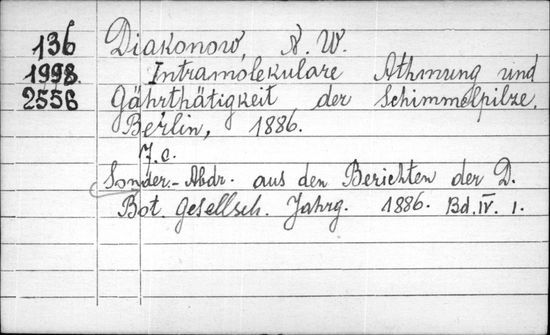 136 Diakonow, N. W.
1998. Intramolekulare Athmung und
2556 Gährthätigkeit der Schimmelpilze.
Berlin, 1886.
7. c.
Sonder.-Abdr. aus den Berichten der D.
Bot. Gesellsch. Jahrg. 1886. Bd. IV. 1.